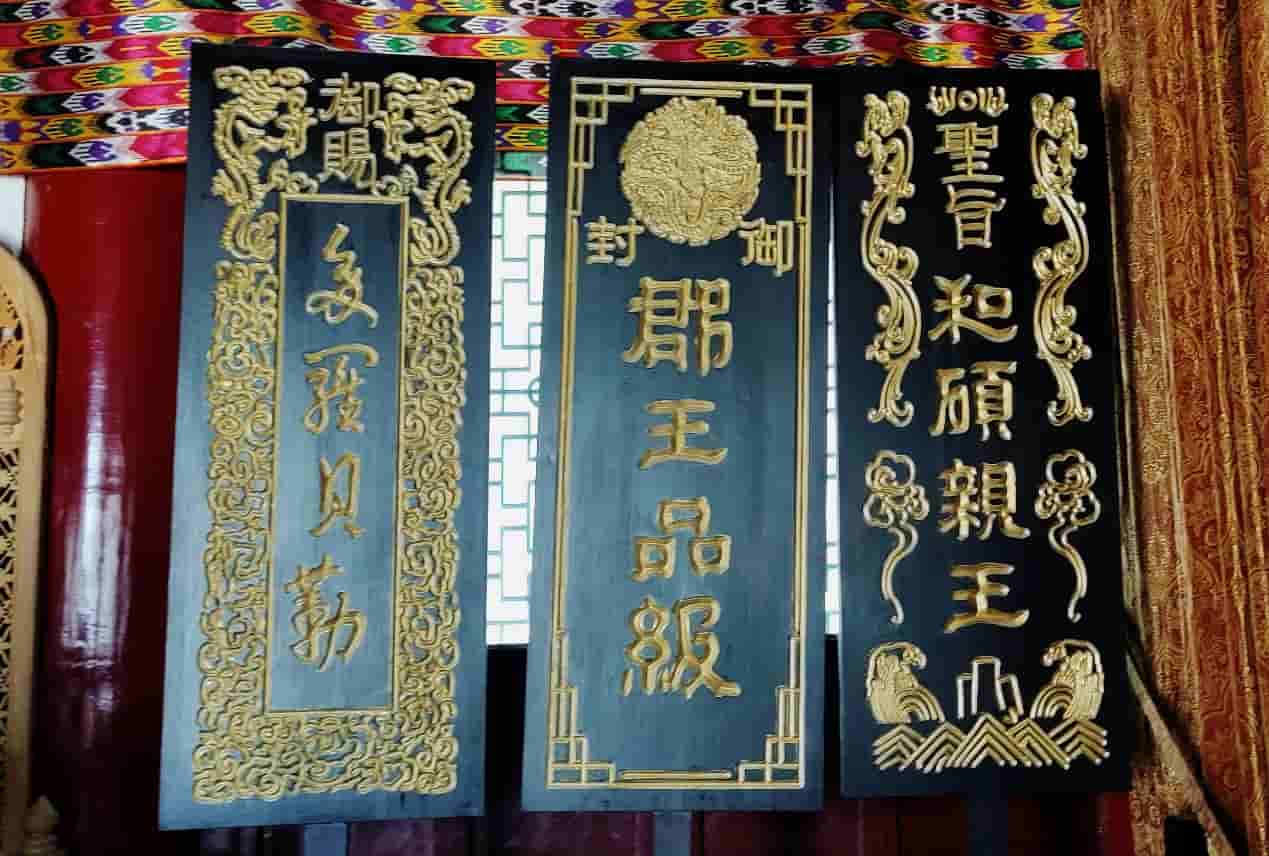 聖旨
和碩親王
御封
郡王品級
御賜
多羅貝勒